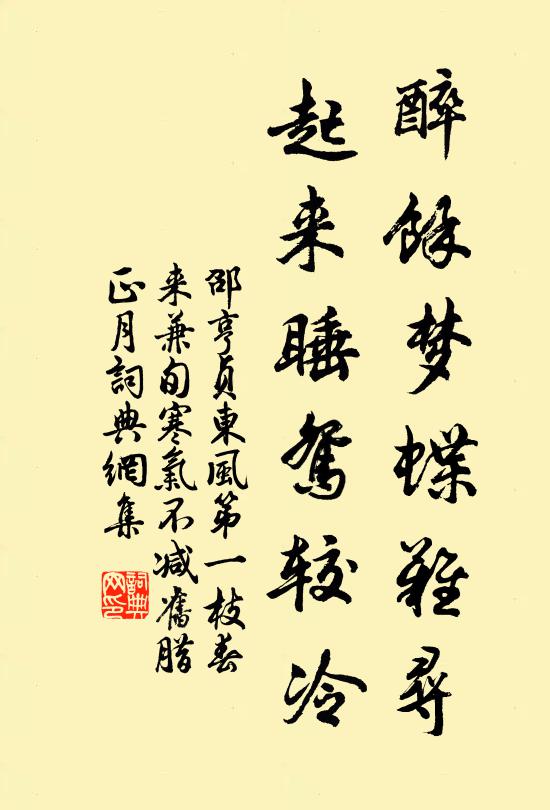 醉餘梦蝶難尋
起来睡鴛較冷
邵亨貞東風第一枝春
来兼旬寒氣不减舊腊
正月詞典網集
詞典網印